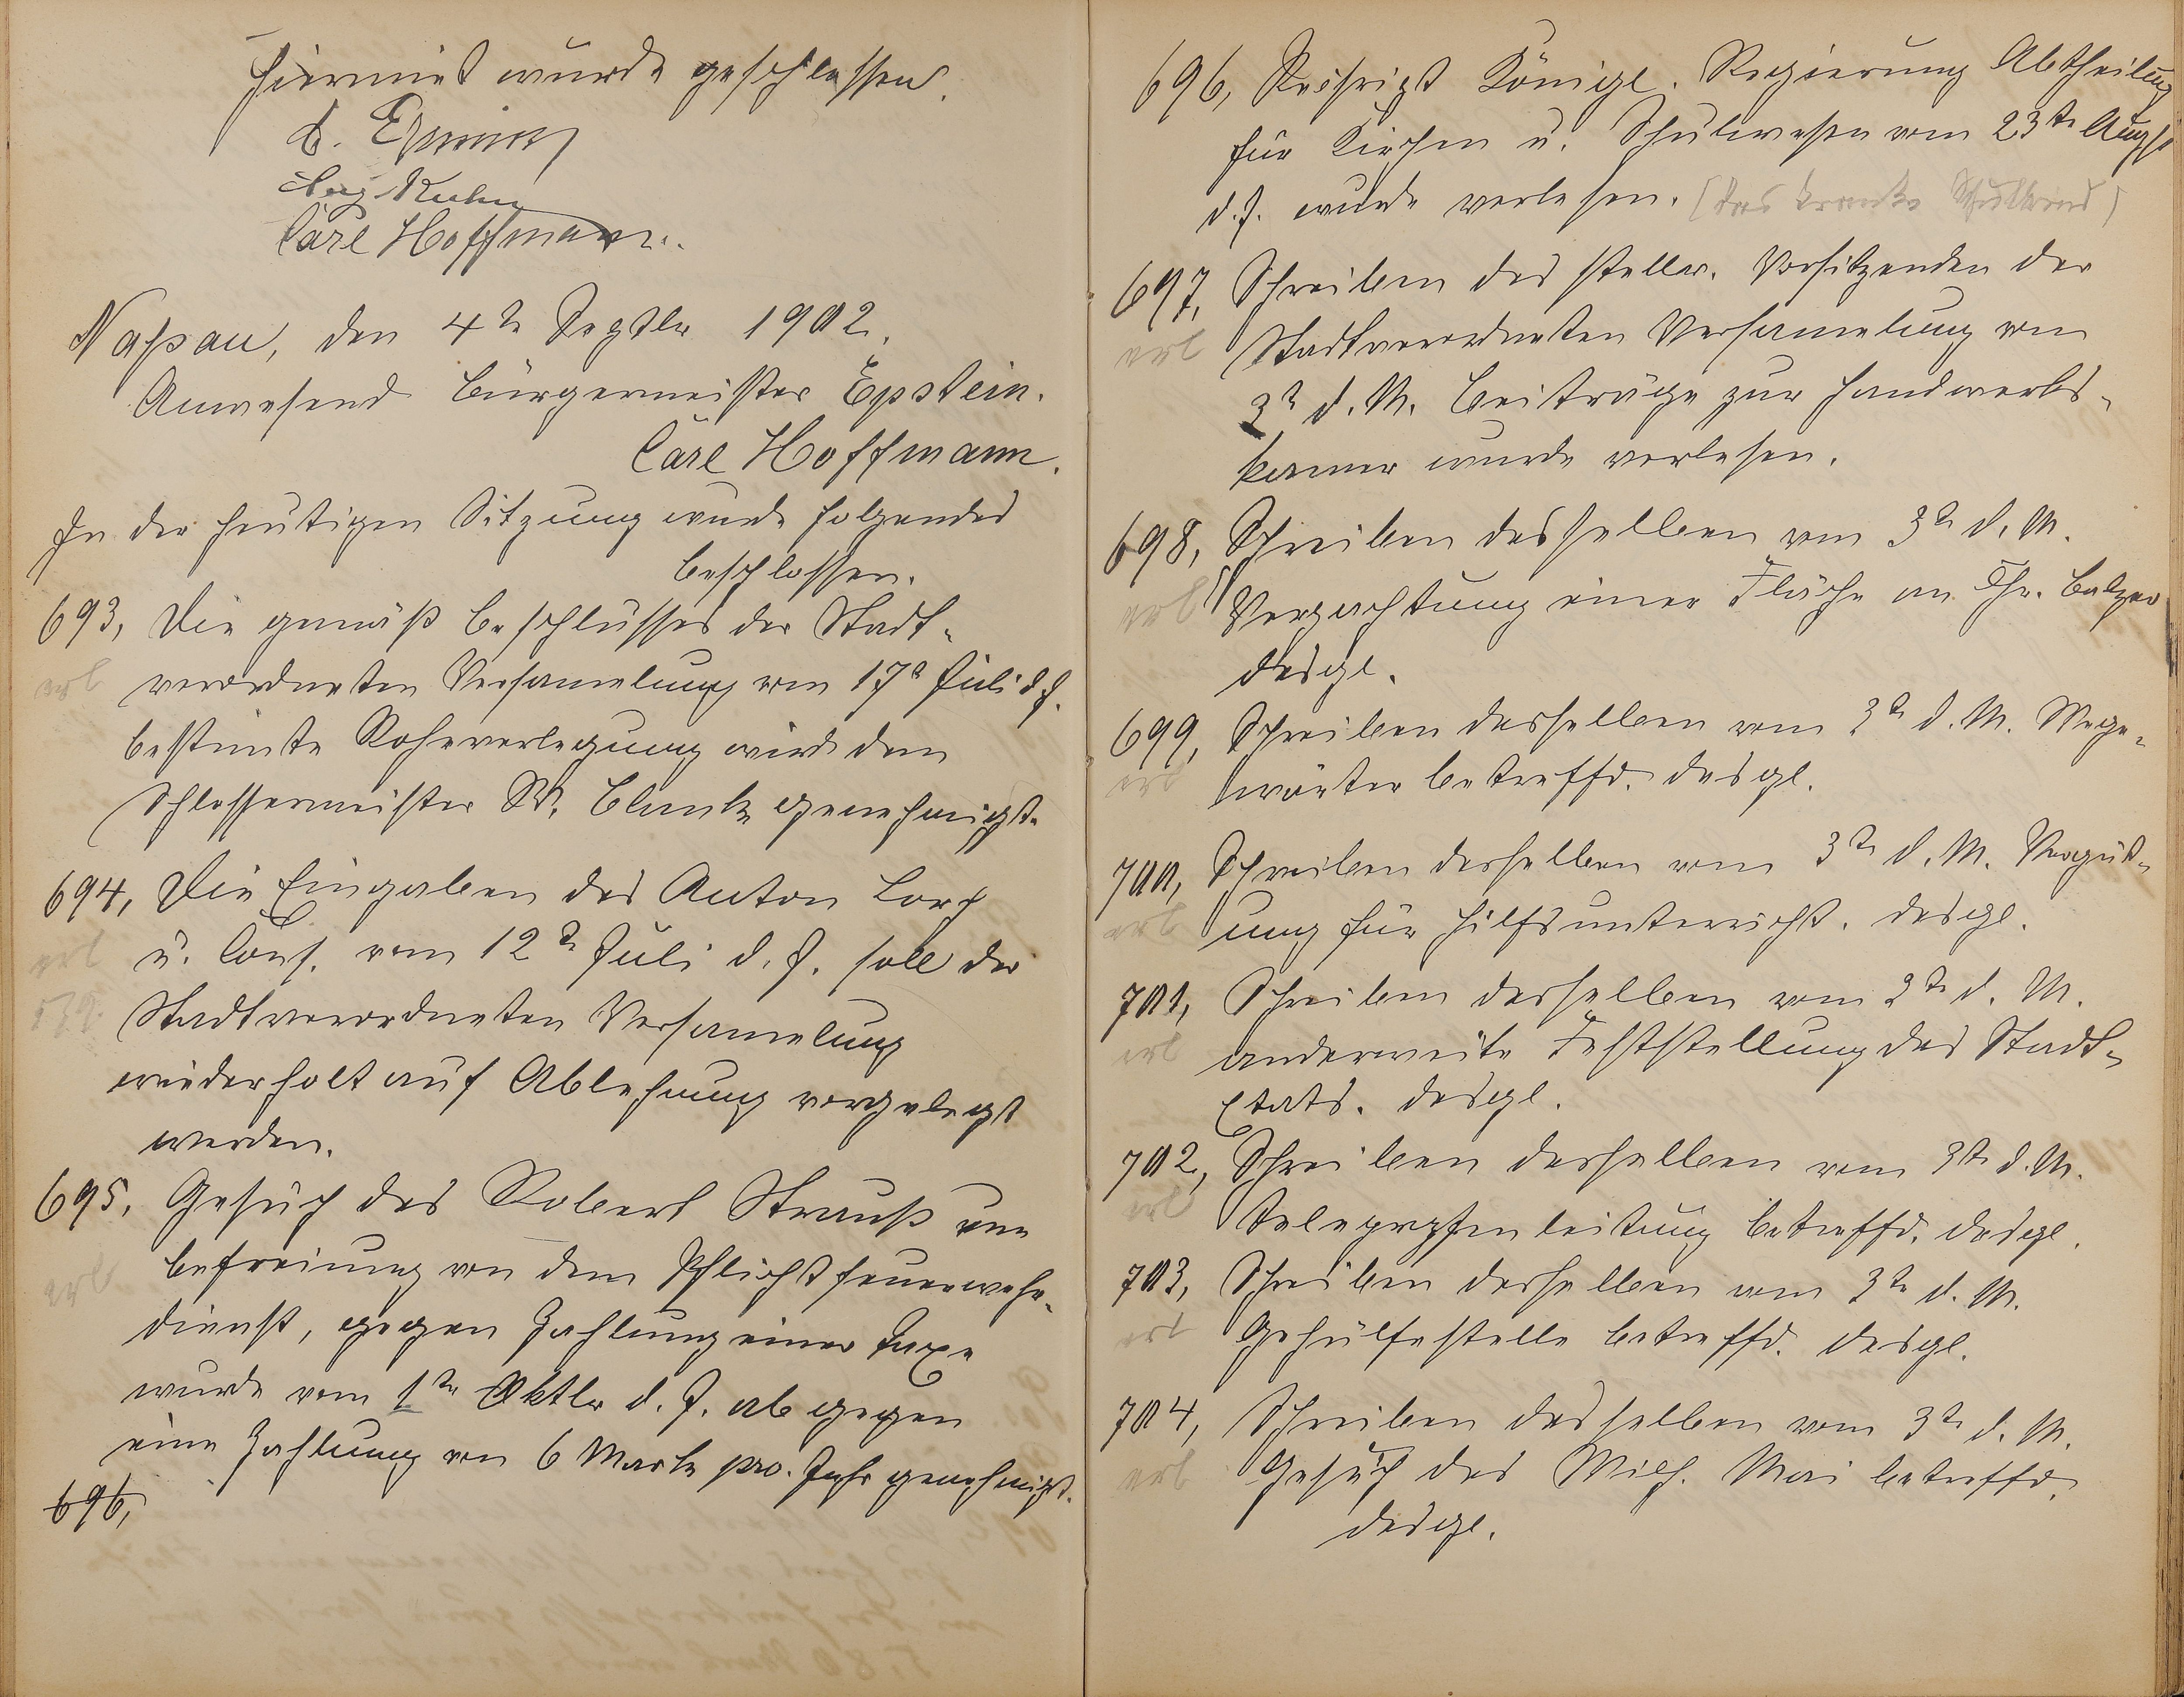 Hiermit wurde geschlossen.
Aug. Kuhn
Carl Hoffmann.
Nassau, den 4tn Septbr 1902.
Anwesend Bürgermeister Epstein.
Carl Hoffmann.
In der heutigen Sitzung wurde folgendes
beschlossen.
693, Die gemäß Beschlusses der Stadt-
erl verordneten Versamelung vom 17n Juli d. J.
bestimte Rohrverlegung wird dem
Schlossermeister W. Blank genehmigt.
694, Die Eingaben des Anton Lorch
erl u. Cons. vom 12tn Juli d. J. soll der
Stadtverordneten Versamelung
wiederholt auf Ablehnung vorgelegt
werden.
695, Gesuch des Robert Strauß um
erl Befreiung von dem Pflichtfeuerwehr-
dienst, gegen Zahlung einer Taxe
wurde vom 1tn Oktbr d. J. ab gegen
eine Zahlung von 6 Mark pro. Jahr genehmigt.
696,
696, Reskript Königl. Regierung Abtheilung
für Kirchen u. Schulwesen vom 23tn August
d. J. wurde verlesen. (das kranke Schulkind)
697, Schreiben des stellv. Vorsitzenden der
erl Stadtverordneten Versamelung vom
3tn d. M. Beiträge zur Handwerks-
kamer wurde verlesen.
698, Schreiben desselben vom 3tn d. M.
erl Verpachtung einer Fläche an Chr. Balzer
desgl.
699, Schreiben desselben vom 3tn d. M. Wege-
erl wärter betreffd. desgl.
700, Schreiben desselben vom 3tn d. M. Vergüt-
erl ung für Hilfsunterricht. desgl.
701, Schreiben desselben vom 3tn d. M.
erl anderweite Feststellung des Stadt-
Etats. desgl.
702, Schreiben desselben vom 3tn d. M.
erl Telegrafenleitung betreffd. desgl.
703, Schreiben desselben vom 3tn d. M.
erl Gehülfestelle betreffd. desgl.
704, Schreiben desselben vom 3tn d. M.
erl Gesuch des Wilh. Mai betreffd.
desgl.